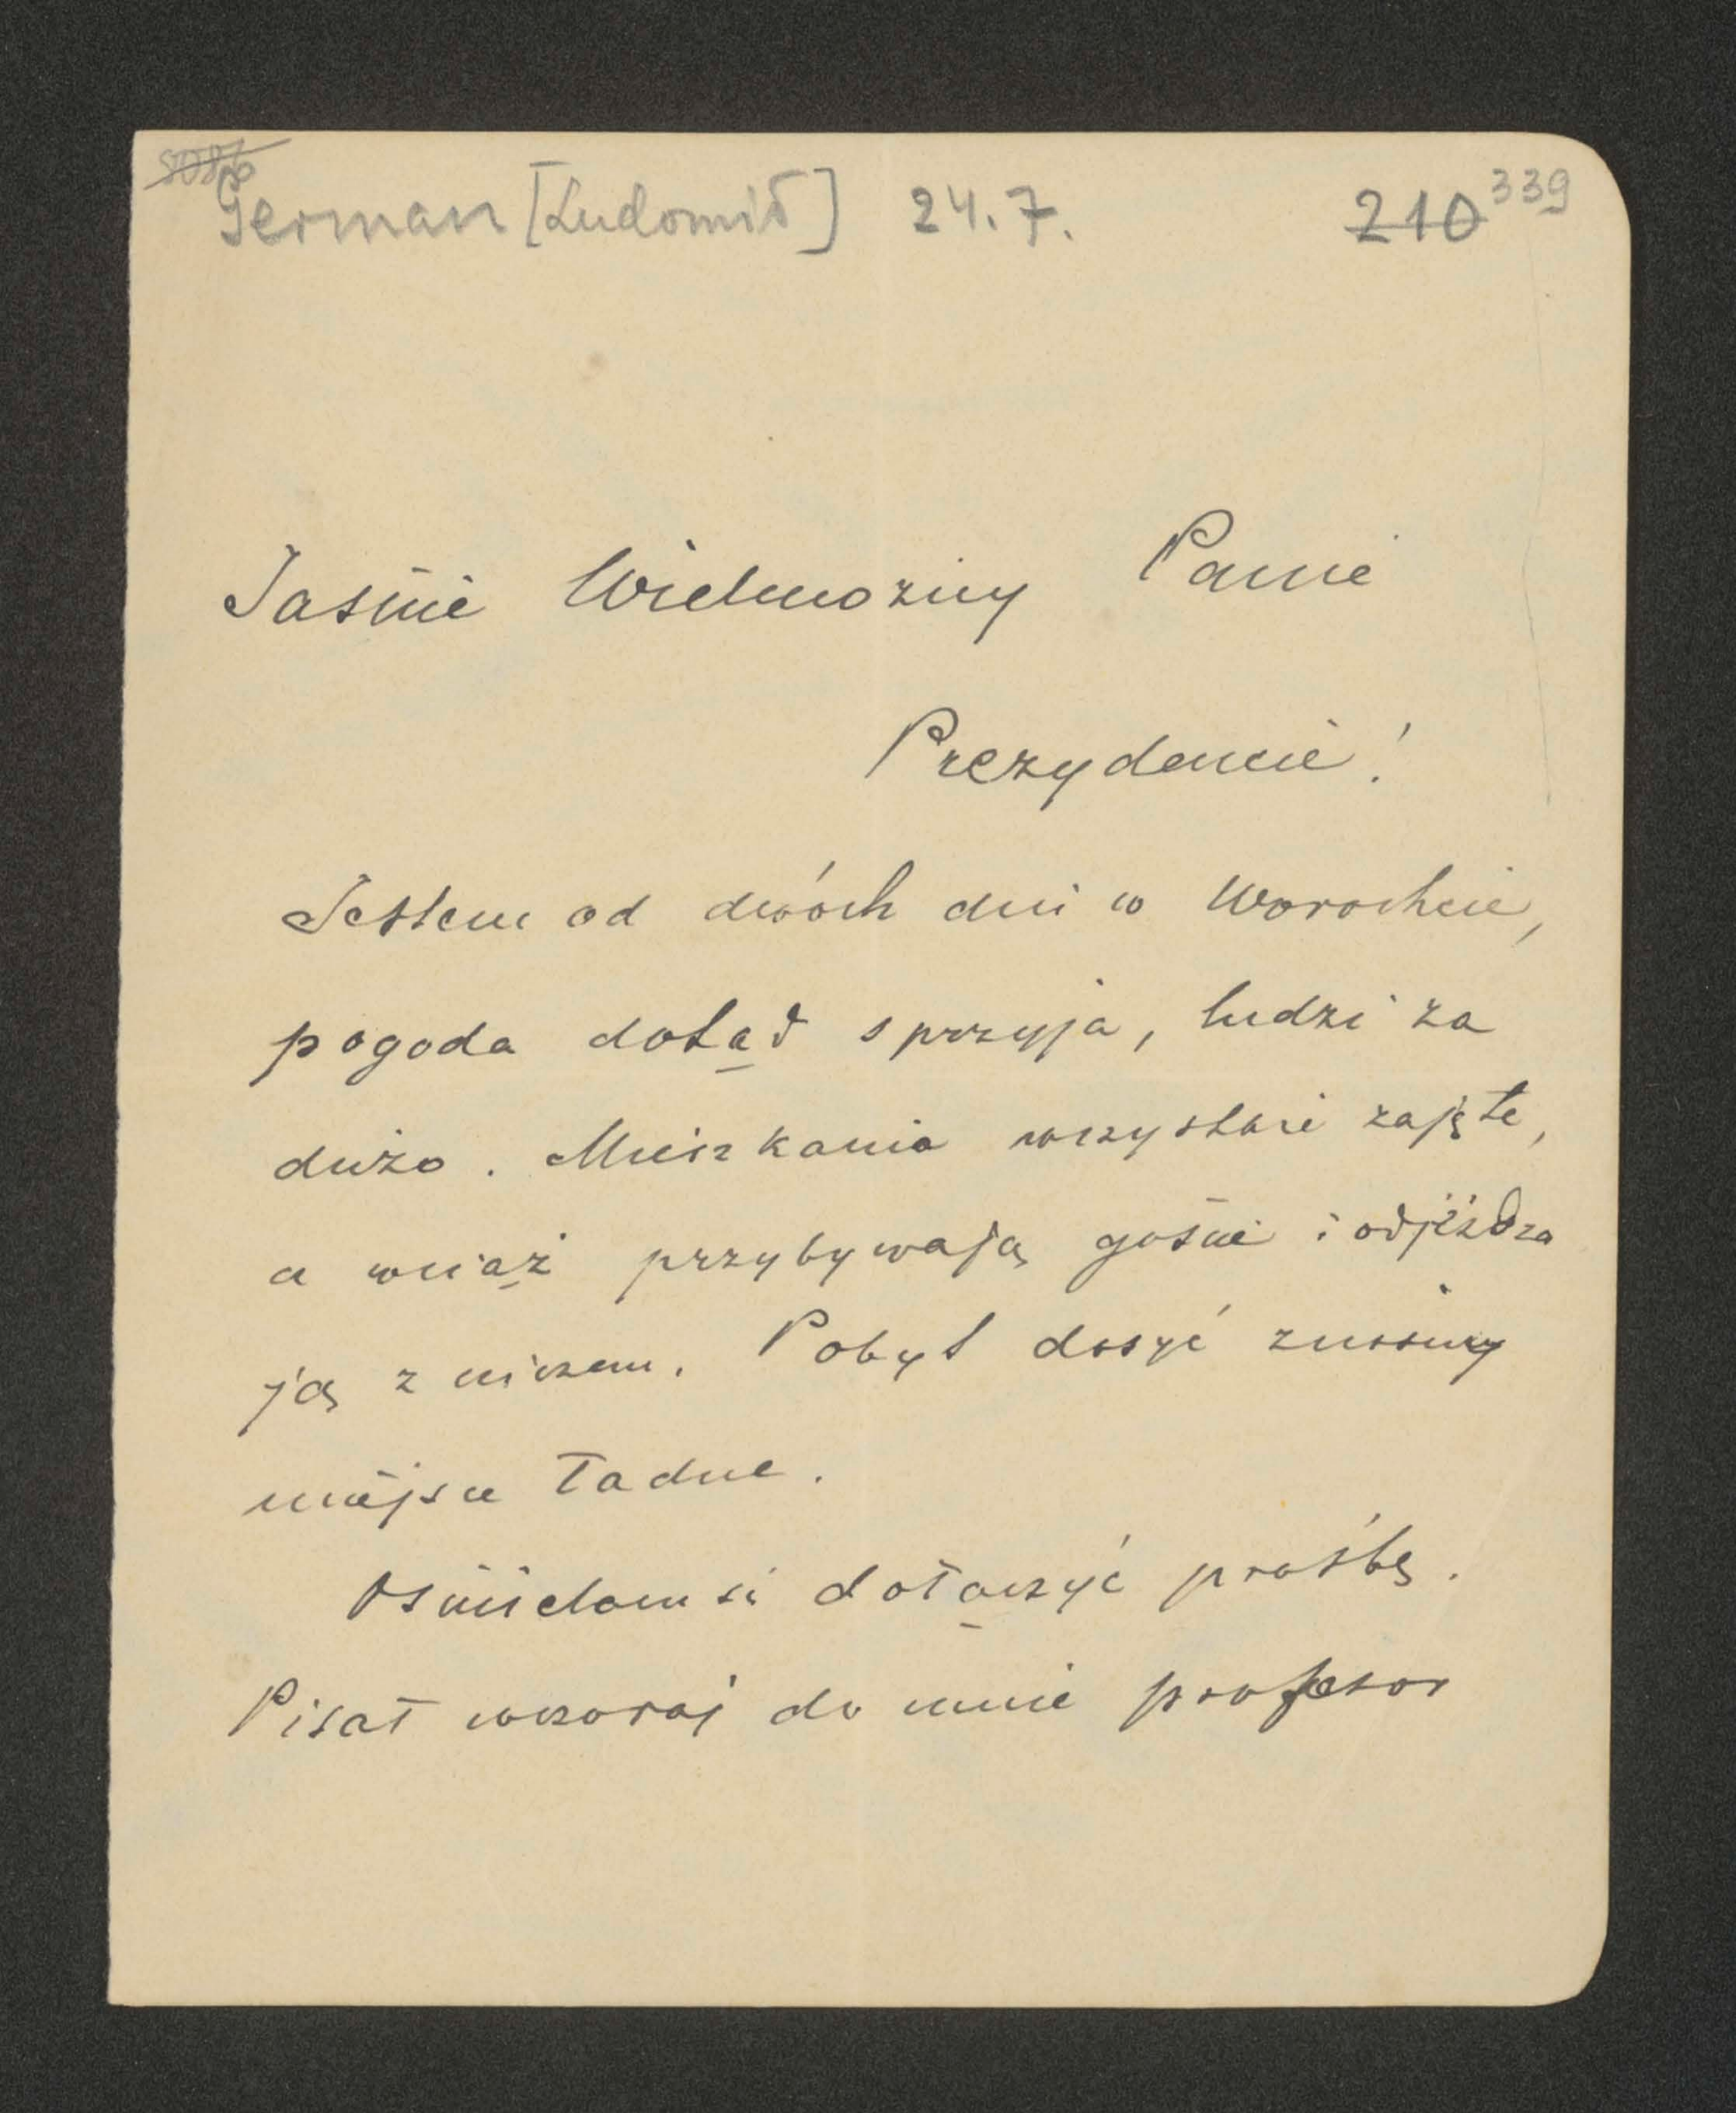 German [Ludomił] 24.7. 210 339
Jaśnie Wielmożny Panie
Prezydencie!
Jestem od dwóch dni w Worochcie,
pogoda dotąd sprzyja, ludzi za
dużo. Mieszkania wszystkie zajęte,
a wciąż przybywają goście i odjeżdża
ją z niczem. Pobyt dosyć znośny
miejsce ładne.
Ośmielam się dołączyć prośbę.
Pisał wczoraj do mnie profesor